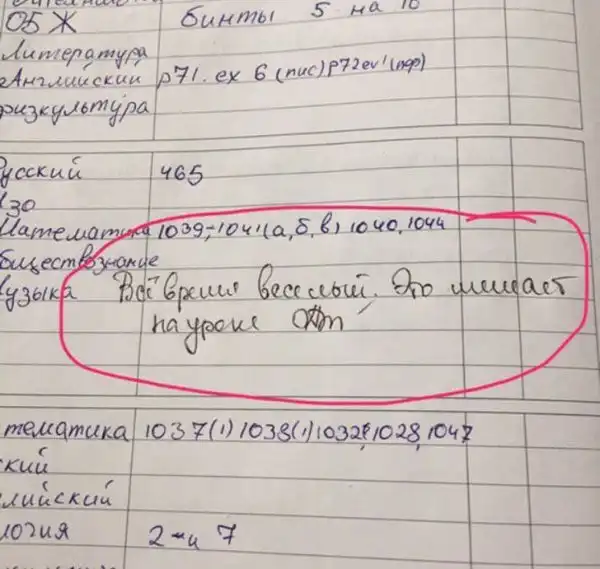 ОБЖ бинты 5 на 10
Литература
Английский p71. ex 6 (пис) p72 ex 1 (пер)
физкультура
Русский 465
Изо
Математика 1039, 1041(а, б, в) 1040, 1044
Обществознание
Музыка Всё время веселый. Это мешает
на уроке
тематика 1037(1) 1038(1) 1032 1028, 1047
ский
глийский
логия 2 и 7